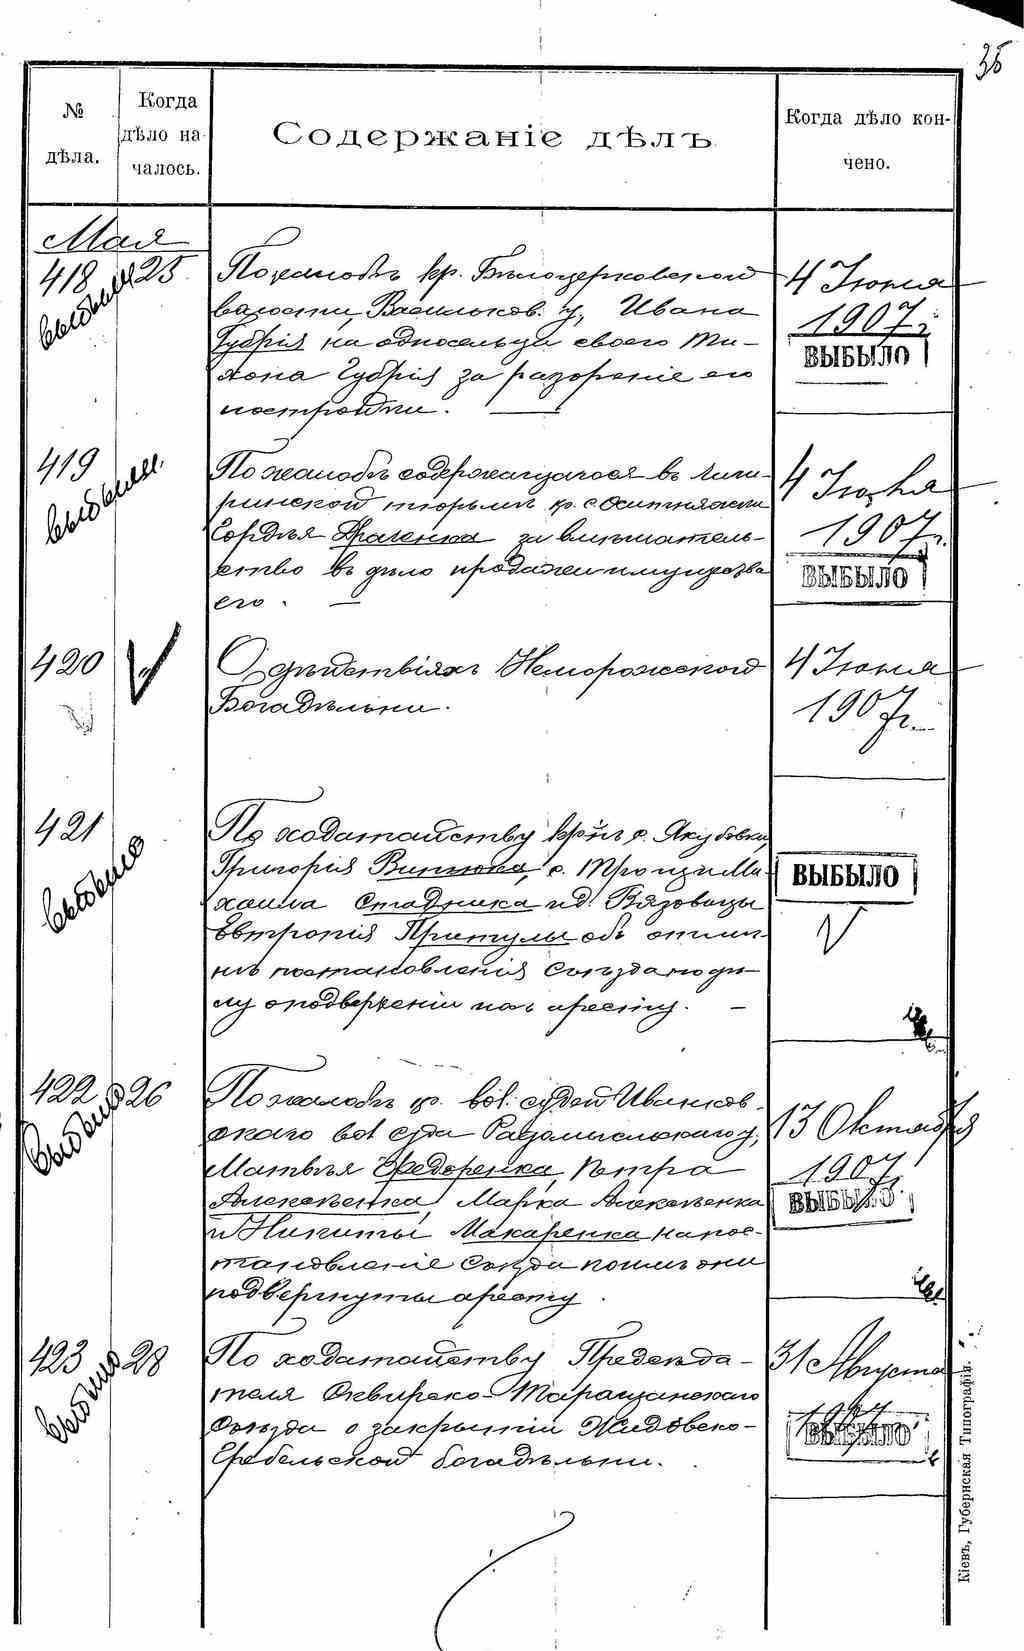 35
№ дѣла.
Когда дѣло началось.
Содержаніе дѣлъ
Когда дѣло кончено.
Мая
418 выбыли 25
По жалобѣ кр. Бѣлоцерковской
волости, Васильков. у., Ивана
Губрія на односельца своего Ти-
хона Губрія за разореніе его
постройки.
4 Іюня
1907 г.
ВЫБЫЛО
419 выбыли
По жалобѣ содержащагося въ Чиги-
ринской тюрьмѣ кр. с. Оситняжки
Гордѣя Драченка за вмѣшатель-
ство въ дѣло продажи имущества
его.
4 Іюня
1907 г.
ВЫБЫЛО
420
О дѣйствіяхъ Неморожского
Богадѣльни.
4 Іюня
1907 г.
421 выбыло
По ходатайству кр. изъ с. Якубовки,
Григорія с. Троци Ми-
хаила Стадника и д. Вязовицы
Евтропія Притулы объ отмѣ-
нѣ постановленія Съѣзда по дѣ-
лу о подверженіи ихъ аресту.
ВЫБЫЛО
422 выбыло 26
По жалобѣ кр. вол. судей Иванков-
скаго вол. суда Радомысльскаго у.,
Матвѣя Федоренка, Петра
Алексѣенка, Марка Алексѣенка
и Никиты Макаренка на пос-
тановленіе Съѣзда коимъ они
подвергнуты аресту.
13 Октября
1907 г.
ВЫБЫЛО
423 выбыло 28
По ходатайству Предсѣда-
теля Сквирско-Таращанскаго
Съѣзда о закрытіи Жидовско-
Гребельской богадѣльни.
31 Августа
1907
ВЫБЫЛО
Кіевъ, Губернская Типографія.